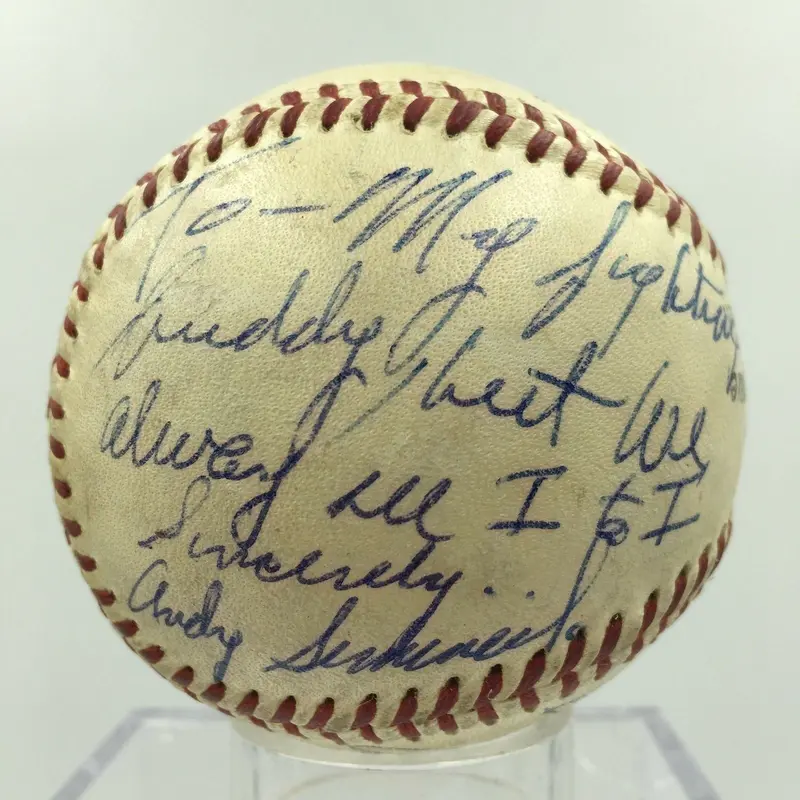 To - My fighting
Buddy, but We
always see I to I
Sincerely..
Andy Seminick